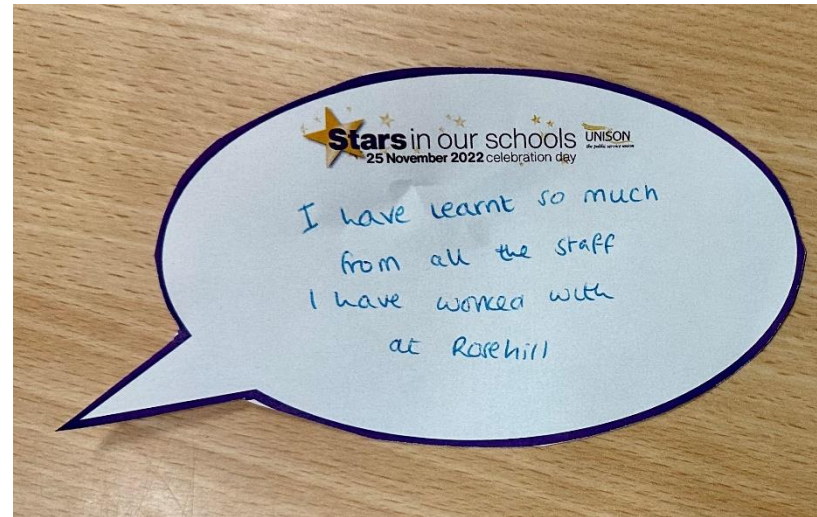 Stars in our schools UNISON
the public service union
25 November 2022 celebration day
I have learnt so much
from all the staff
I have worked with
at Rosehill